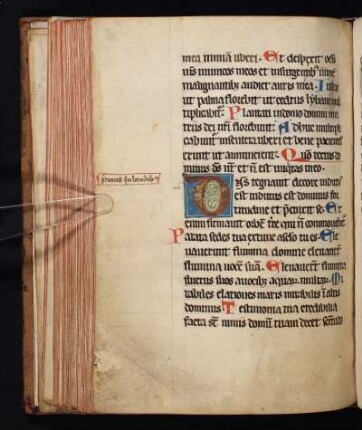 mea in mīa uberi. Et despexit ocs
ul's inimicos meos et insurgentib; in me
malignantib; audiet auris mea. Iustus
ut palma florebit ut cedrus lybani mul
tiplicabit. Plantati in domo domini in a
triis dei nr̄i florebunt. Adhuc multipli
cabunt in senecta uberi et bene pacientes
erunt ut annuncient. Qm̄ rectus do
minus ds̄ nr̄ et nō est iniqitas in eo.
Dn̄s regnauit decore indutus
est indutus est dominus for
titudine et p̄cinxit se. Et
enim firmauit orbem tr̄e qui nō commouebit
Parata sedes tua ex tunc a sc̄lo tu es. Ele
uauerunt flumina domine eleuauerūt
flumina uocē suā. Eleuauerūt flumina
fluctus suos a uocib; aquarū multar. Mi
rabiles elationes maris mirabilis ī altis
dominus. Testimonia tua credibilia
facta st̄ nimis domū tuam decet scītudo